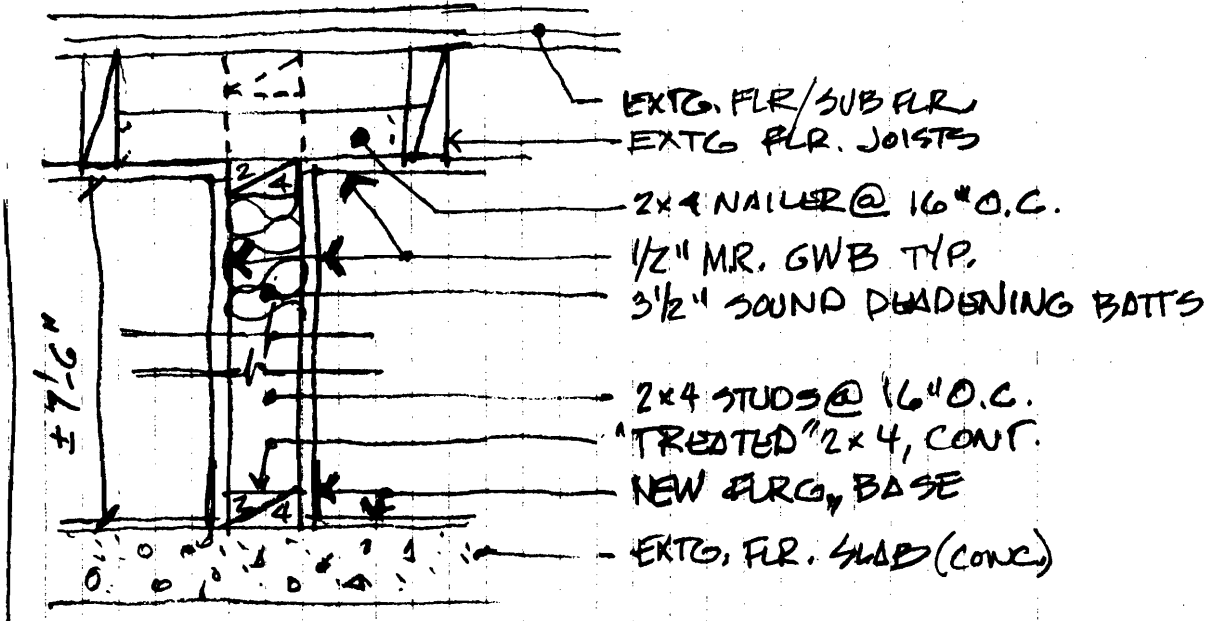 EXTG. FLR/SUB FLR.
EXTG FLR. JOISTS
2x4 NAILER @ 16" O.C.
1/2" M.R. GWB TYP.
3 1/2" SOUND DEADENING BATTS
2x4 STUDS @ 16" O.C.
"TREATED" 2x4, CONT.
NEW FLRG, BASE
EXTG. FLR. SLAB (CONC.)
2 4
2 4
± 7'-6"